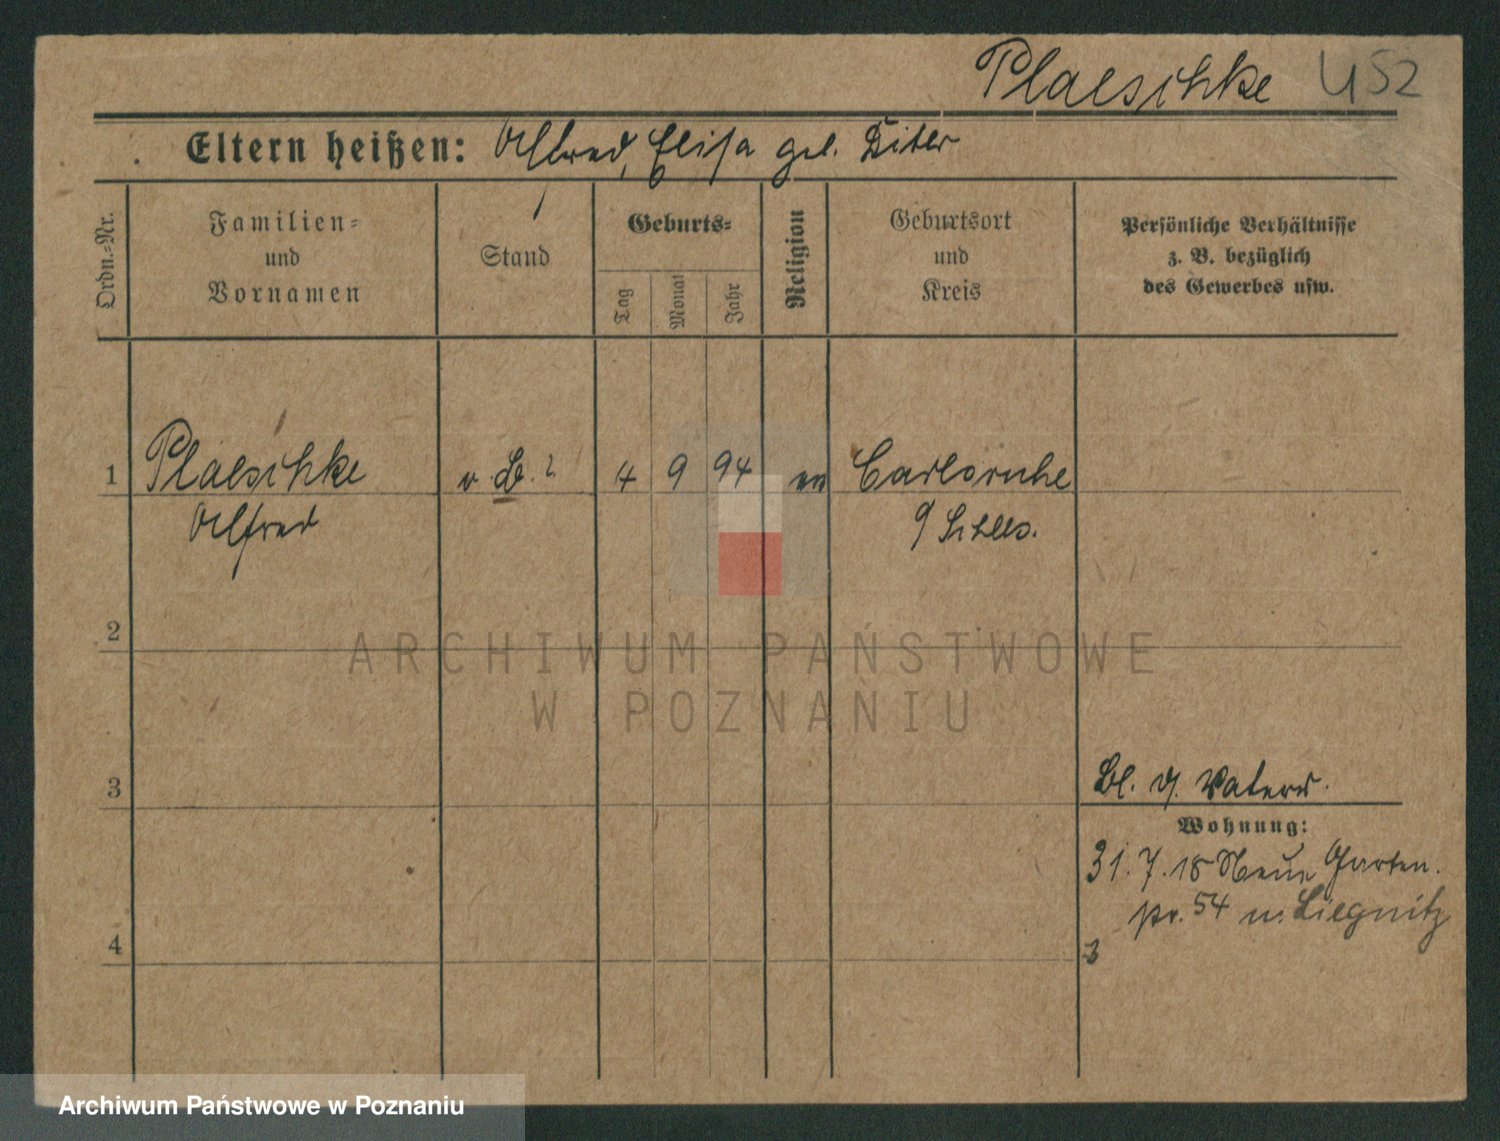 Plaeschke U52
Eltern heißen: Alfred, Elisa geb. Diter
Ordn.-Nr.
Familien-
und
Vornamen
Stand
Geburts-
Tag
Monat
Jahr
Religion
Geburtsort
und
Kreis
Persönliche Verhältnisse
z. B. bezüglich
des Gewerbes usw.
1 Plaeschke 4 9 94 ev Carlsruhe
Alfred Schles.
2
ARCHIWUM PAŃSTWOWE
W POZNANIU
3
Bl. d. Vaters.
Wohnung:
31.7.18 Neue Garten.
str. 54 n. Liegnitz
4
Archiwum Państwowe w Poznaniu